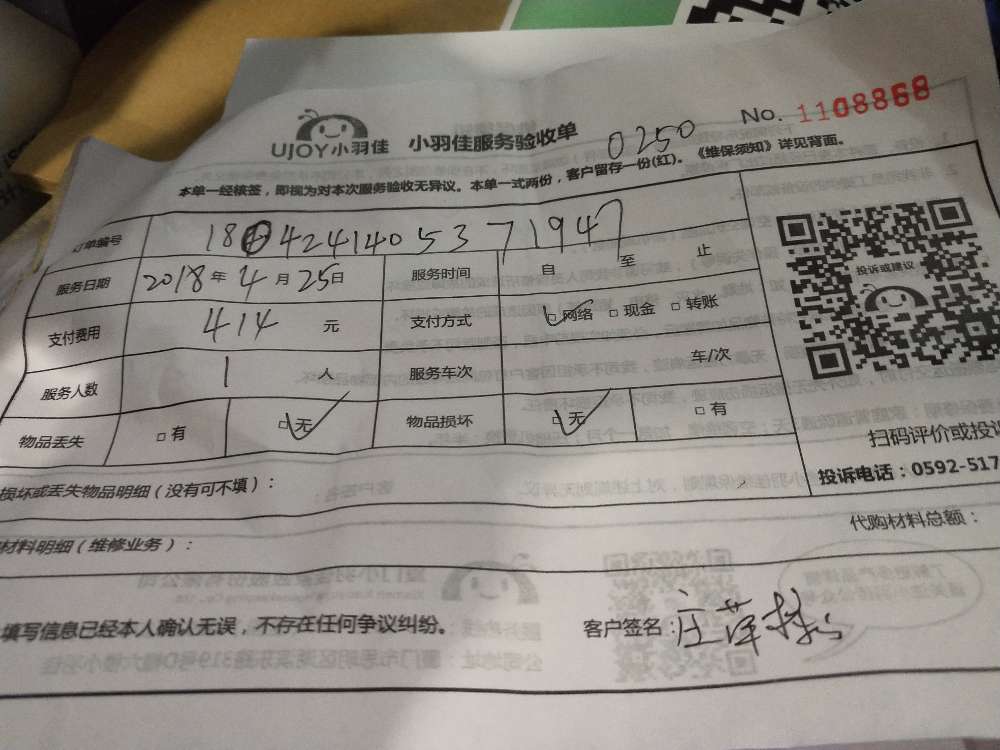 No. 1108868
UJOY小羽佳 小羽佳服务验收单 0250
本单一经核签，即视为对本次服务验收无异议。本单一式两份，客户留存一份(红)。《维保须知》详见背面。
订单编号 424140537194
服务日期 2018年4月25日 服务时间 自 至 止
投诉或建议
支付费用 414 元 支付方式 □网络 □现金 □转账
服务人数 1 人 服务车次 车/次
物品丢失 □有 □无 物品损坏 □无 □有
扫码评价或投诉
投诉电话：0592-517
损坏或丢失物品明细（没有可不填）：
代购材料总额：
材料明细（维修业务）：
填写信息已经本人确认无误，不存在任何争议纠纷。 客户签名：庄萍